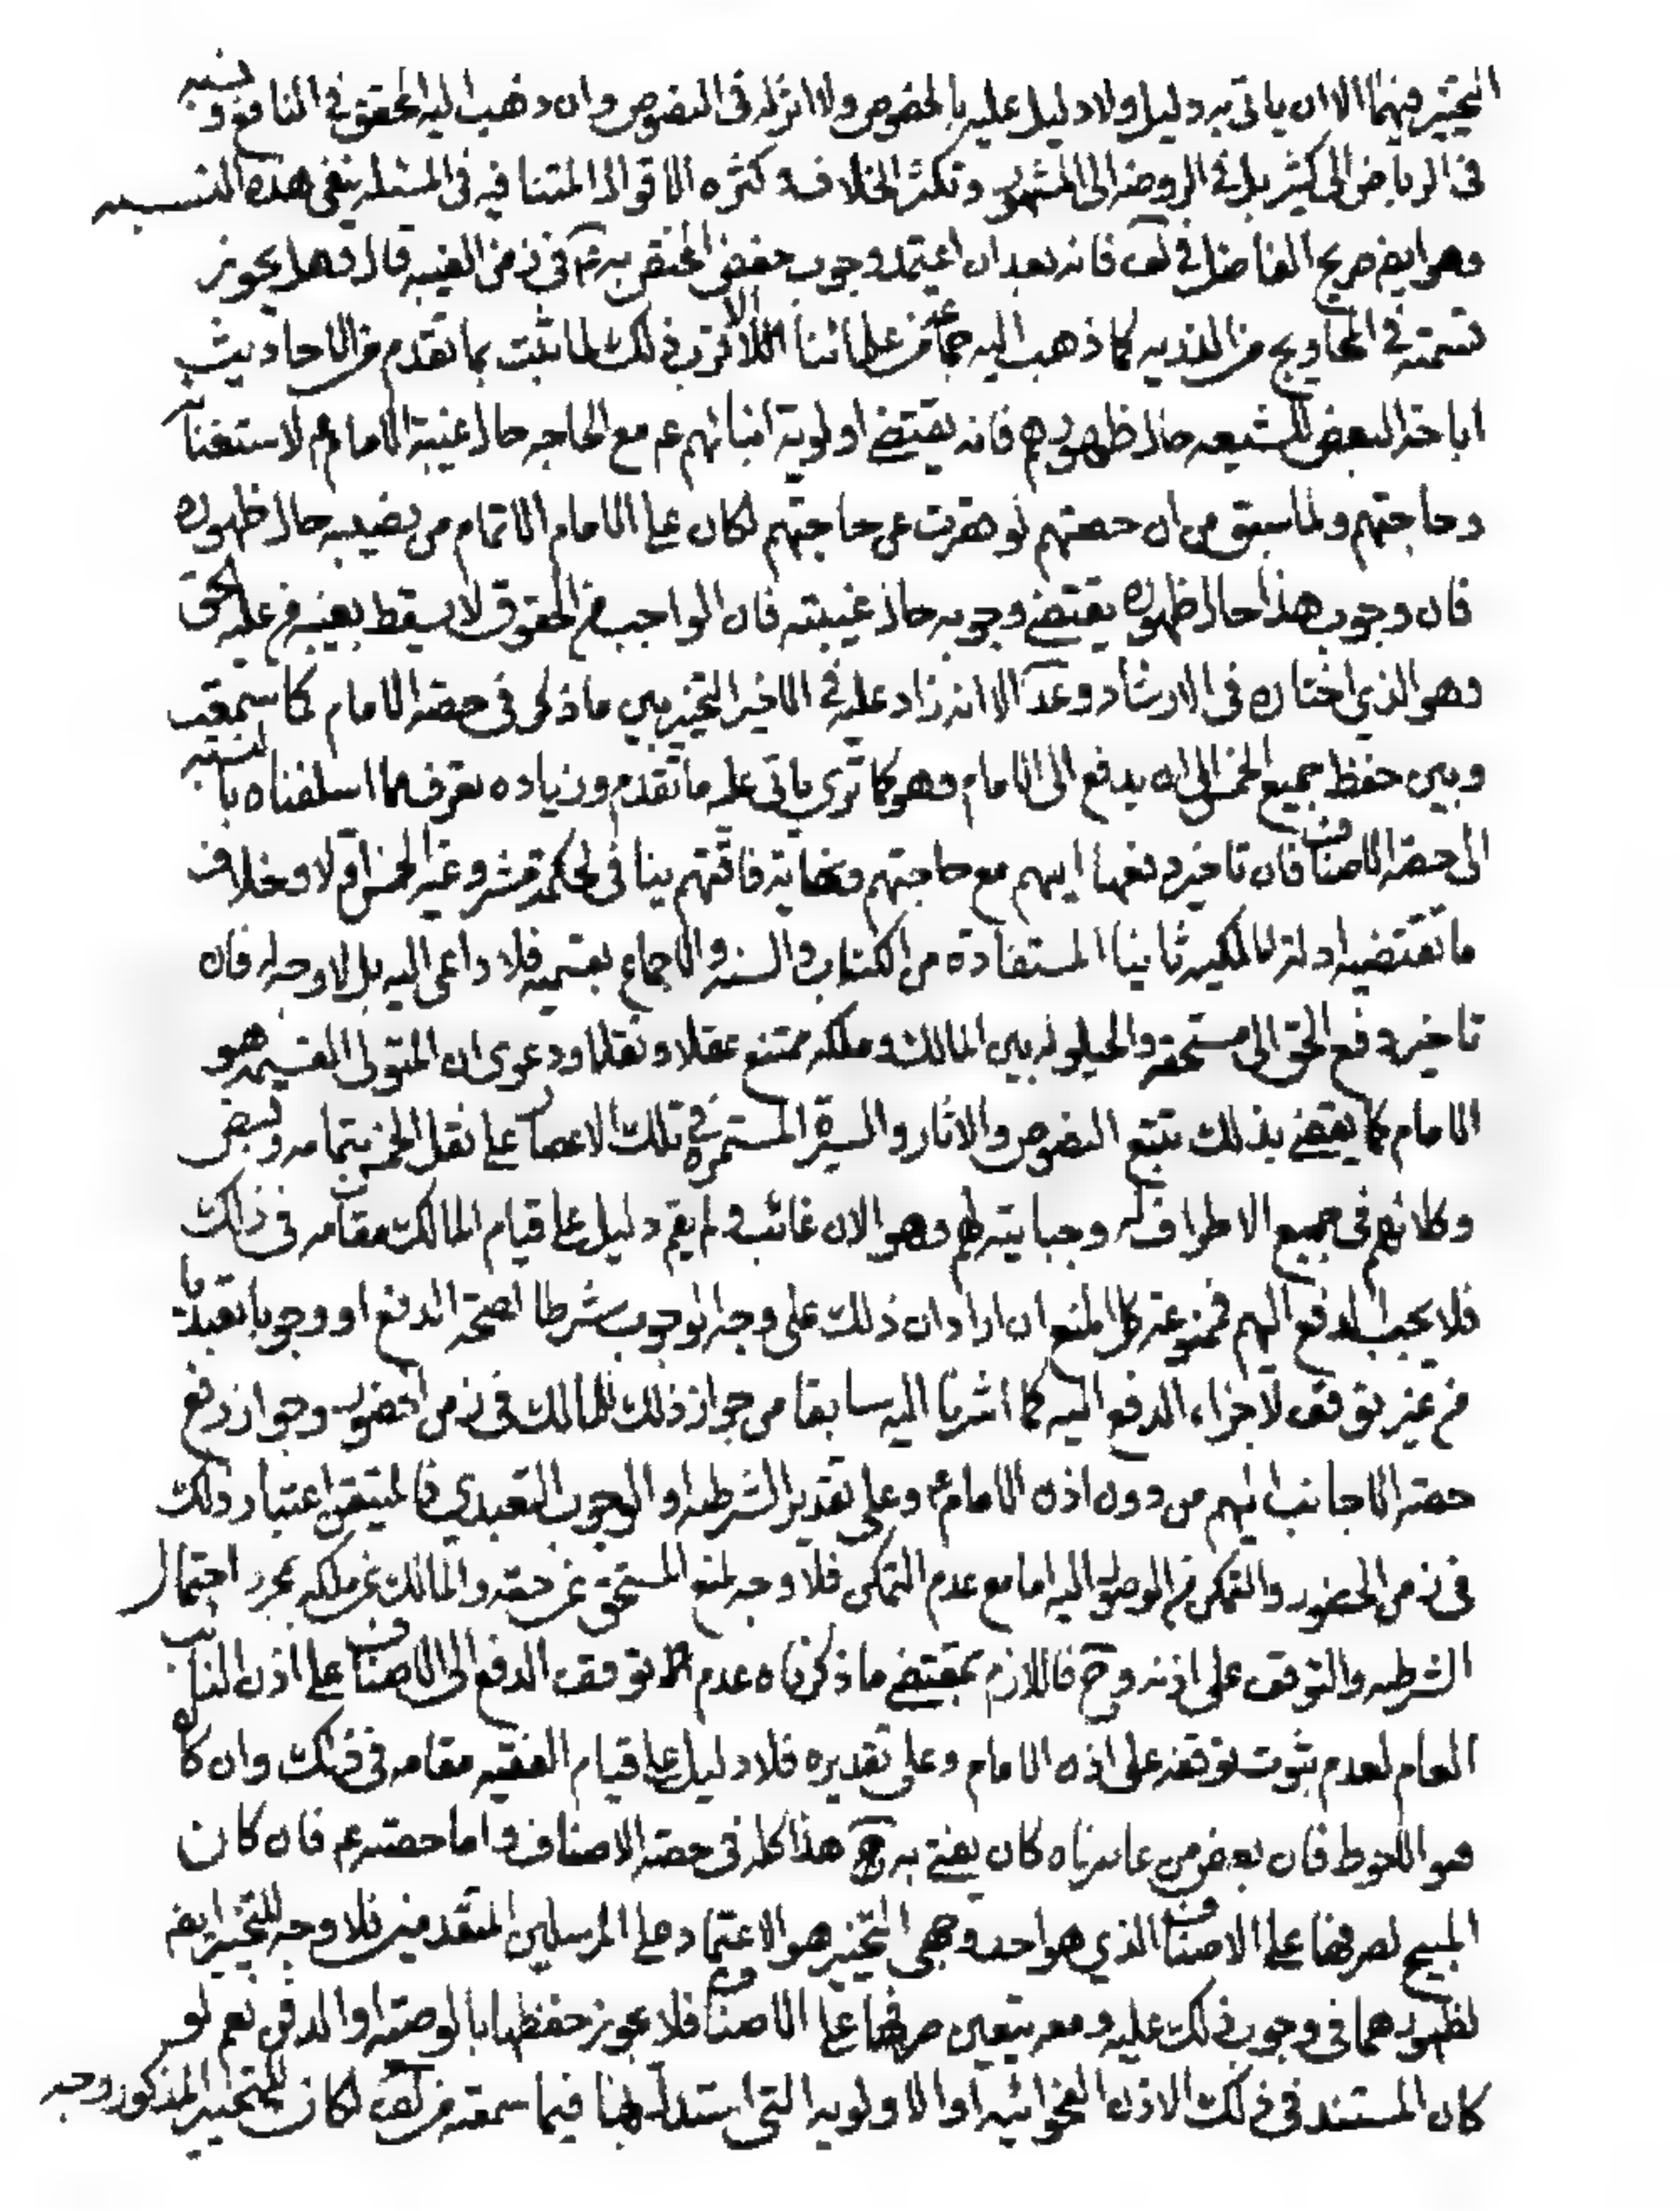 التخيير فيهما الا ان ياتي به دليل ولا دليل عليه بالخصوص ولا اثر له في النصوص وان ذهب اليه المحقق في النافع ونسبه
في الرياض الى كثير بل في الروضه الى المشهور وتكثر الخلاف وكثره الاقوال المتنافيه في المسئله ينفي هذه النسبه
وهو ايض صريح الفاضل في لف فانه بعد ان اعتمد وجوب حفظ المختص به ع في زمن الغيبه قال وهل يجوز
قسمته في المحاويج من الذريه كما ذهب اليه جماعة من علمائنا الاقرب ذلك لما ثبت بما تقدم من الاحاديث
اباحة البعض للشيعه حال ظهورهم فانه يقتضي اولوية انبائهم عم مع الحاجه حال غيبة الامام ع لاستغنائه
وحاجتهم ولما سبق من ان حصتهم لو قصرت عن حاجتهم لكان على الامام الاتمام من نصيبه حال ظهوره
فان وجوب هذا حال ظهوره يقتضي وجوبه حال غيبته فان الواجب من الحقوق لا يسقط بغيبة من عليه الحق
وهو الذي اختاره في الارشاد وعد الا انه زاد عليه في الاخير التخيير بين ما ذكر في حصة الامام كما ستمعت
وبين حفظ جميع الخمس الى ان يدفع الى الامام وهو كما ترى ياتي عليه ما تقدم وزياده تعرف مما اسلفناه بالنسبه
الى حصة الاصناف فان تاخير دفعها اليهم مع حاجتهم ونهاية فاقتهم ينافي لحكمة مشروعية الخمس اولا وخلاف
ما تقتضيه ادلة المالكيه ثانيا المستفادة من الكتاب والسنه والاجماع بقسميه فلا داعي اليه بل لا وجه له فان
تاخير دفع الحق الى مستحقه والحيلوله بين المالك وملكه ممتنع عقلا ونقلا ودعوى ان المتولي القسمه هو
الامام كما يقضي بذلك تتبع النصوص والاثار والسيرة المستمرة في تلك الاعصار على نقل الخمس بتمامه وقبض
وكلائهم في جميع الاطراف له وجبايته لهم وهو الان غائب ولم يقم دليل على قيام المالك مقامه في ذلك
فلا يجب الدفع اليهم فممنوعة كل المنع ان اراد ان ذلك على وجه الوجوب شرطا لصحة الدفع او وجوبا تعبديا
من غير توقف لاجزاء الدفع اليه كما اشرنا اليه سابقا من جواز ذلك للمالك في زمن الحضور وجواز دفع
حصة الاجانب اليهم من دون اذن الامام ع وعلى تقدير الشرطيه او الوجوب التعبدي فالمتيقن اعتبار ذلك
في زمن الحضور والتمكن من الوصول اليه اما مع عدم التمكن فلا وجه لمنع المستحق عن حقه والمالك عن ملكه بمجرد احتمال
الشرطيه والتوقف على اذنه وح فاللازم بمقتضى ما ذكرناه عدم توقف الدفع الى الاصناف على اذن النائب
العام لعدم ثبوت توقفه على اذن الامام وعلى تقديره فلا دليل على قيام الفقيه مقامه في ذلك وان كان
هو الاحوط فان بعض من عاصرناه كان يفتي به هذا كله في حصة الاصناف واما حصته عم فان كان
المبيح لصرفها على الاصناف الذي هو احد وجهي التخيير هو الاعتماد على المرسلين المتقدمين فلا وجه للتخيير ايض
لظهورهما في وجوب ذلك عليه ومعه يتعين صرفها على الاصناف فلا يجوز حفظها بالوصيه او الدفن نعم لو
كان المستند في ذلك الاذن الفحوائيه او الاولويه التي استدل بها فيما سمعته من لف لكان للتخيير المذكور وجه